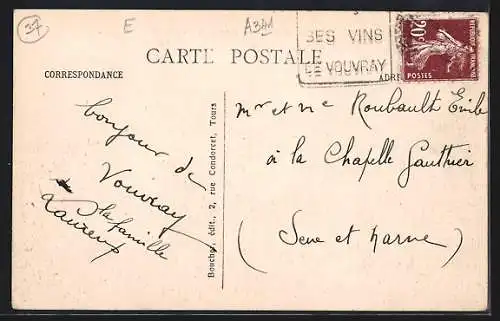 37
E
A341
SES VINS
DE VOUVRAY
20c
POSTES
CARTE POSTALE
CORRESPONDANCE
ADRE
bonjour de
Vouvray
la famille
Laurent
Bouchet, édit., 2, rue Condorcet, Tours
Mr et Me Roubault Emile
à la Chapelle Gauthier
(Seine et Marne)